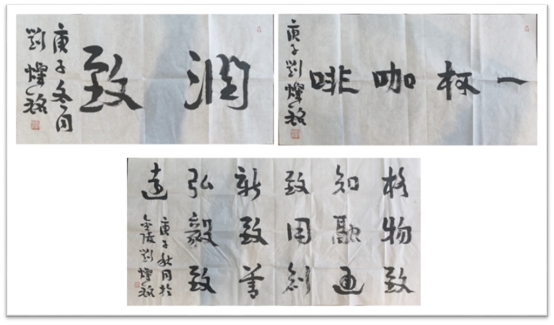 润致
庚子冬月
劉燦銘
一杯咖啡
庚子劉燦銘
格物致
知融通
致用創
新致善
弘毅致
遠
庚子秋月於
金陵劉燦銘